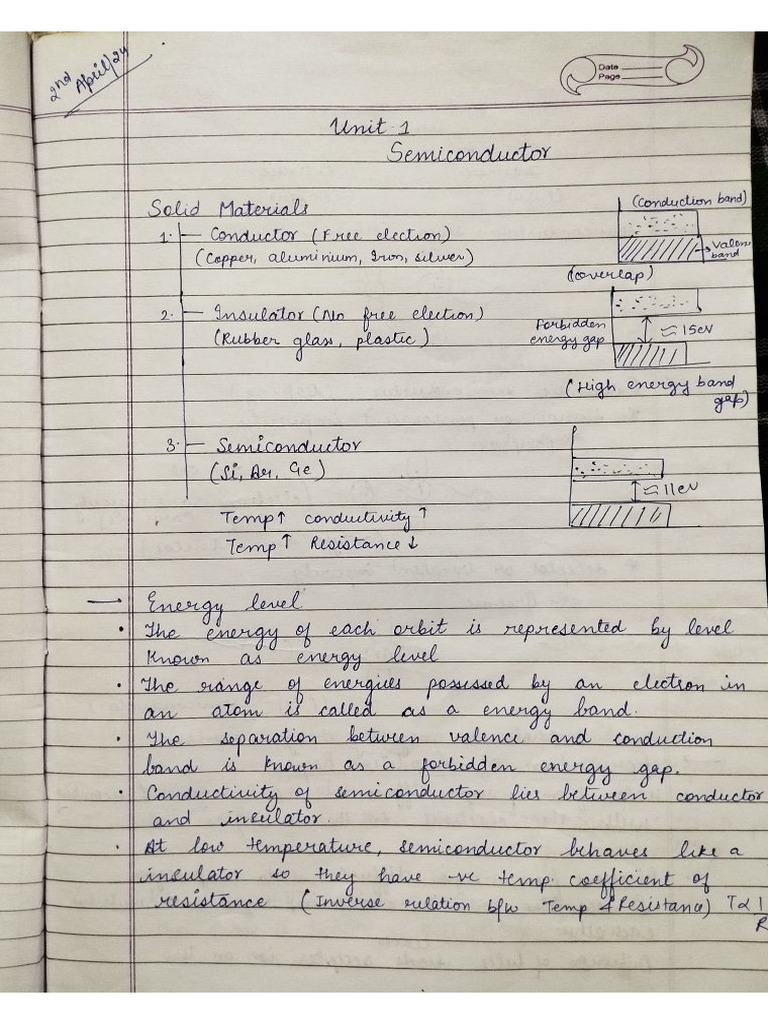 2nd April/24
Date
Page
Unit 1
Semiconductor
Solid Materials
(Conduction band)
1. Conductor (Free election)
→ Valence band
(Copper, aluminium, Iron, silver)
(overlap)
2. Insulator (No free election)
Forbidden energy gap
≈ 15eV
(Rubber glass, plastic)
(High energy band gap)
3. Semiconductor
(Si, Ar, Ge)
≈ 11eV
Temp↑ conductivity↑
Temp↑ Resistance↓
— Energy level
• The energy of each orbit is represented by level
known as energy level
• The range of energies possessed by an electron in
an atom is called as a energy band.
• The separation between valence and conduction
band is known as a forbidden energy gap.
• Conductivity of semiconductor lies between conductor
and insulator.
• At low temperature, semiconductor behaves like a
insulator so they have -ve temp. coefficient of
resistance (Inverse relation b/w Temp & Resistance) T∝ 1/R